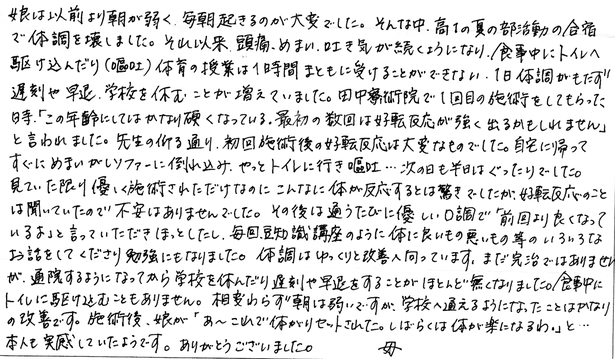 娘は以前より朝が弱く、毎朝起きるのが大変でした。そんな中、高1の夏の部活動の合宿
で体調を壊しました。それ以来、頭痛、めまい、吐き気が続くようになり、食事中にトイレへ
駆け込んだり(嘔吐)体育の授業は1時間まともに受けることができない、1日体調がもたず
遅刻や早退、学校を休むことが増えていました。田中療術院で1回目の施術をしてもらった
時、「この年齢にしてはかなり硬くなっている。最初の数回は好転反応が強く出るかもしれません」
と言われました。先生の仰る通り、初回施術後の好転反応は大変なものでした。自宅に帰って
すぐにめまいがしソファーに倒れ込み、やっとトイレに行き嘔吐…次の日も半日はぐったりでした。
見ていた限り優しく施術されただけなのにこんなに体が反応するとは驚きでしたが、好転反応のこと
は聞いていたので不安はありませんでした。その後は通うたびに優しい口調で「前回より良くなって
いるよ」と言っていただきほっとしたし、毎回豆知識講座のように体に良いもの悪いもの等のいろいろな
お話をしてくださり勉強にもなりました。体調はゆっくりと改善へ向っています。まだ完治ではありません
が、通院するようになってから学校を休んだり遅刻や早退をすることがほとんど無くなりました。食事中に
トイレに駆け込むこともありません。相変わらず朝は弱いですが、学校へ通えるようになったことはかなり
の改善です。施術後、娘が「あ〜これで体がリセットされた。しばらくは体が楽になるわ。」と…
本人も実感していたようです。ありがとうございました。 母